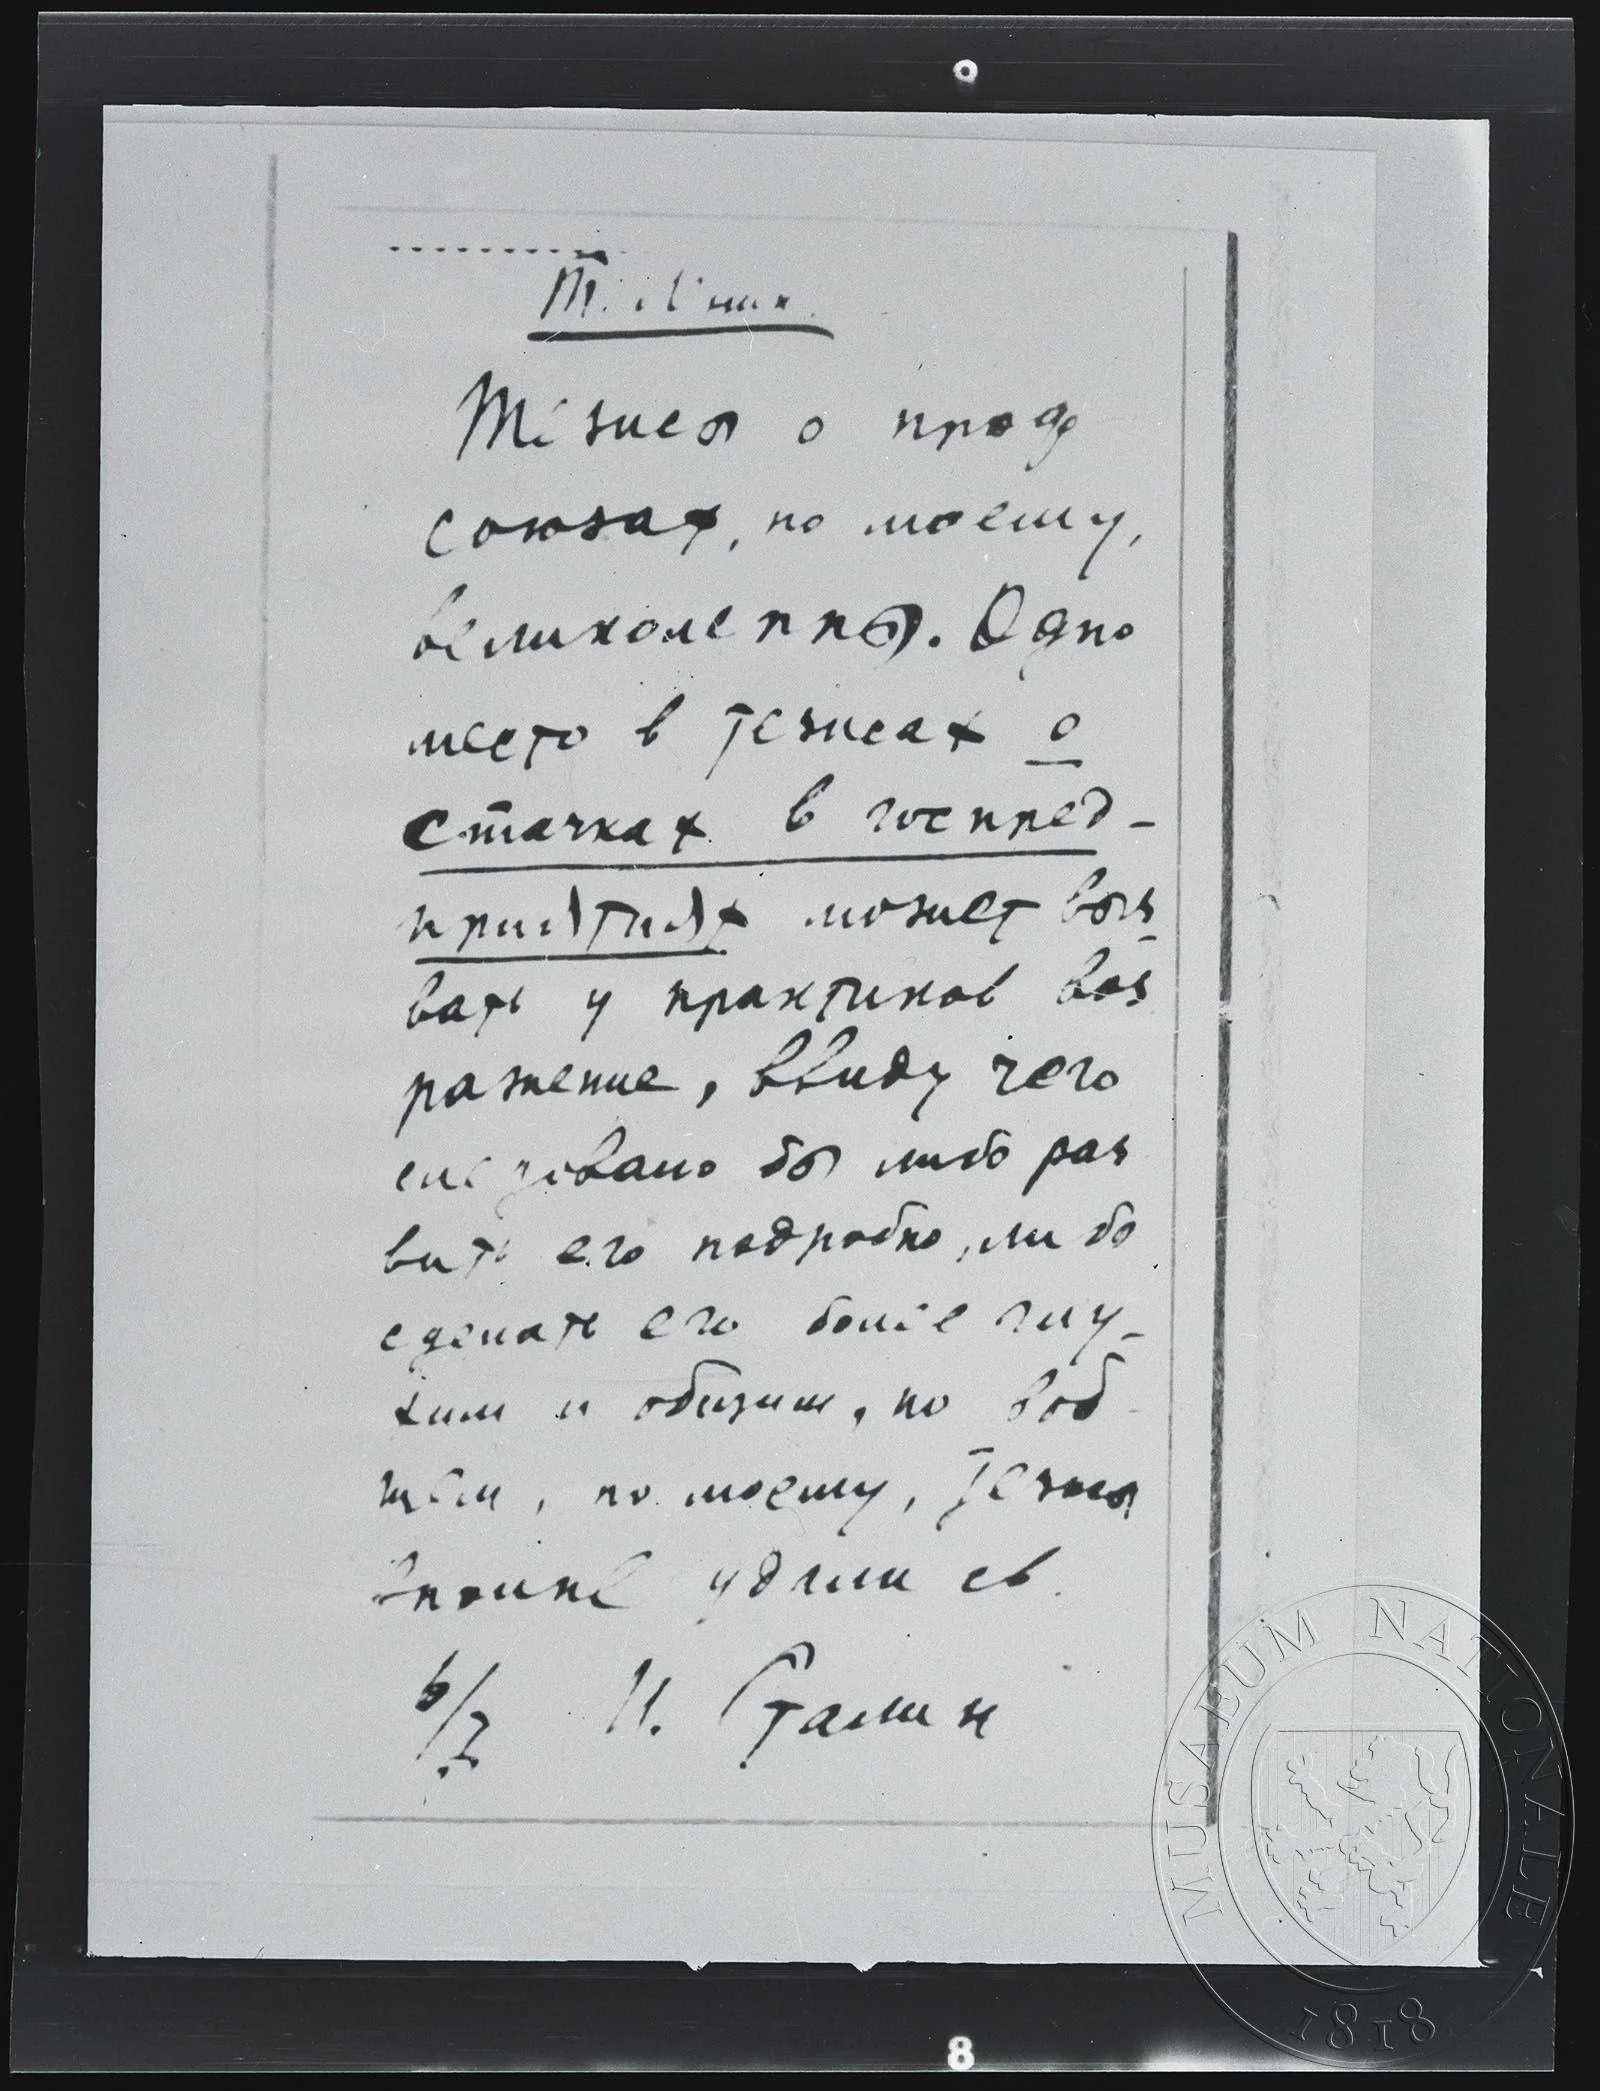 Т. Ленин.
Тезисы о проф
союзах, по моему,
великолепны. Одно
место в тезисах о
стачках в госпред-
приятиях может выз-
вать у практиков воз
ражение, ввиду чего
следовало бы либо раз
вить его подробно, либо
сделать его более глу-
хим и общим, но воб-
щем, по моему, тезисы
вполне удались.
И. Сталин
MUSAEUM NATIONALE
1818
8